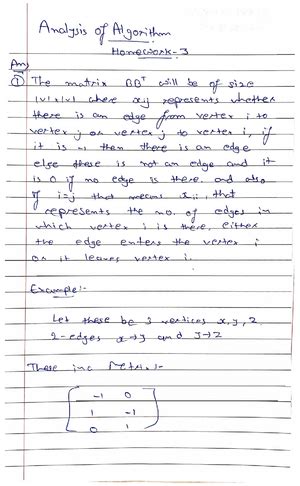 Analysis of Algorithm
Homework-3
Ans
① The matrix BBᵀ will be of size
|V|x|V| where xij represents whether
there is an edge from vertex i to
vertex j or vertex j to vertex i, if
it is -1 then there is an edge
else there is not an edge and it
is 0 if no edge is there. and also
if i=j that means xii, that
represents the no. of edges in
which vertex i is there, either
the edge enters the vertex i
or it leaves vertex i.
Example:-
Let there be 3 vertices x, y, z
2-edges x→y and y→z
There inc Metrix:-
-1 0
1 -1
0 1